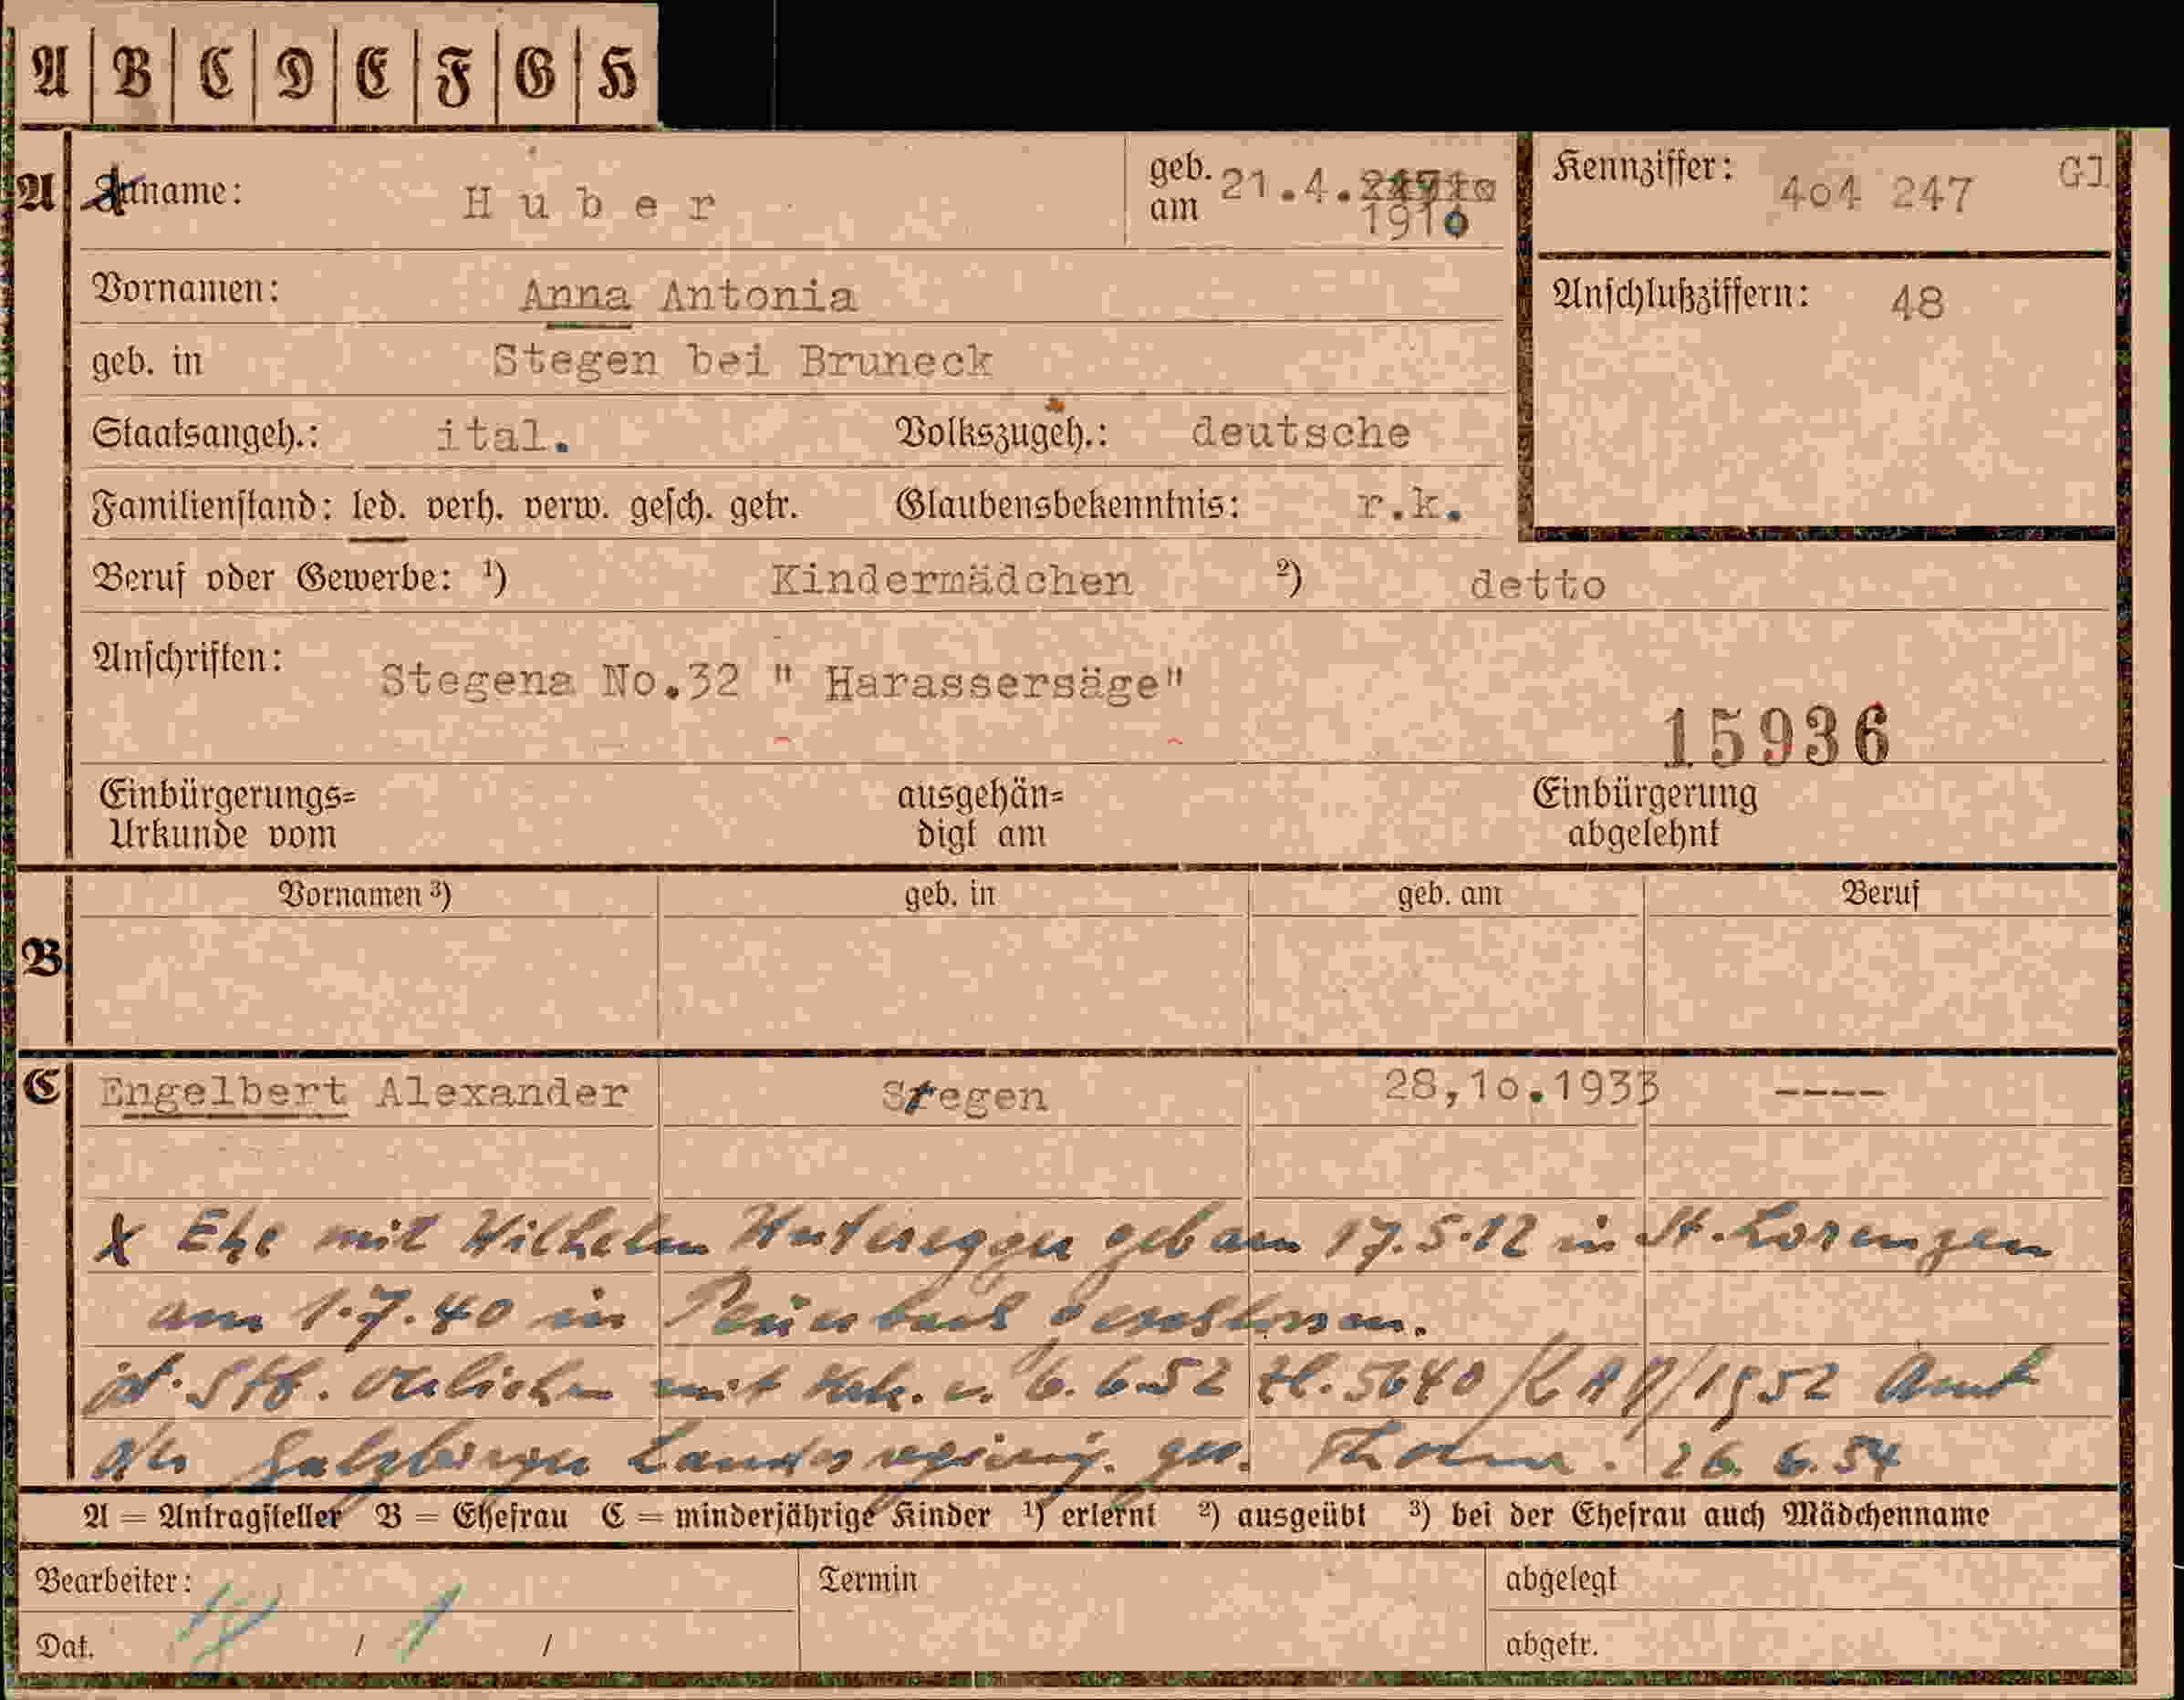 A B C D E F G H
A Zuname: Huber geb. am 21.4. 1910 Kennziffer: 404 247 Gl
Vornamen: Anna Antonia Anschlußziffern: 48
geb. in Stegen bei Bruneck
Staatsangeh.: ital. Volkszugeh.: deutsche
Familienstand: led. verh. verw. gesch. getr. Glaubensbekenntnis: r.k.
Beruf oder Gewerbe: ¹) Kindermädchen ²) detto
Anschriften: Stegena No.32 " Harassersäge"
15936
Einbürgerungs= ausgehän= Einbürgerung
Urkunde vom digt am abgelehnt
Vornamen ³) geb. in geb. am Beruf
B
C Engelbert Alexander Stegen 28,10.1933 ----
x Ehe mit Wilhelm geb am 17.5.12 in St. Lorenzen
am 1.7.40 in geschlossen.
öst. Stb. verliehen mit v. 6.6.52 Zl. 5640/ /1952 Amt
der Salzburger Landesregierg. gez. 26.6.54
A = Antragsteller B = Ehefrau C = minderjährige Kinder ¹) erlernt ²) ausgeübt ³) bei der Ehefrau auch Mädchenname
Bearbeiter: Termin abgelegt
Dat. / / abgetr.